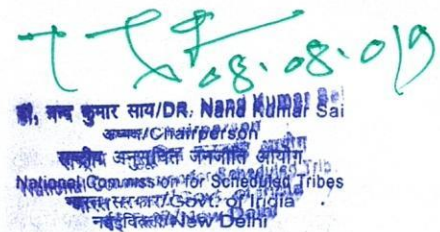 08.08.019
डॉ. नन्द कुमार साय/DR. Nand Kumar Sai
अध्यक्ष/Chairperson
राष्ट्रीय अनुसूचित जनजाति आयोग
National Commission for Scheduled Tribes
भारत सरकार/Govt. of India
नई दिल्ली/New Delhi